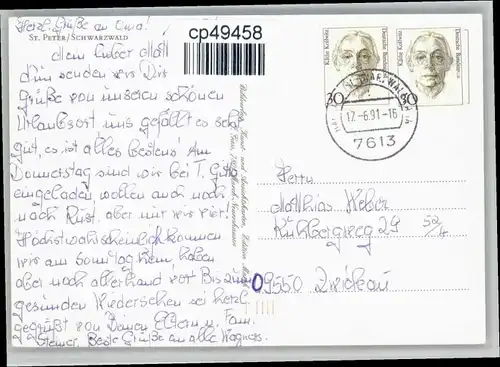 Herzl. Grüße an Oma!
ST. PETER/SCHWARZWALD
Mein lieber Matt
senden wir Dir
Grüße von unserem schönen
Urlaubsort uns gefällt es sehr
gut, es ist alles bestens! Am
Donnerstag sind wir bei T. Gitta
eingeladen, wollen auch noch
nach Rust, aber mit wie viel?
Höchstwahrscheinlich kommen
wir am Sonntag heim, haben
aber noch allerhand vor Bis zum
gesunden Wiedersehen sei herzl.
gegrüßt von Deinen Eltern u. Fam.
Steiner. Beste Grüße an alle Wagners.
cp49458
Deutsche Bundespost
Käthe Kollwitz
30
Deutsche Bundespost
Käthe Kollwitz
30
17.-6.91-16
7613
Herrn
Matthias Weber
Rühbergweg 29 52/4
09550 Zwickau